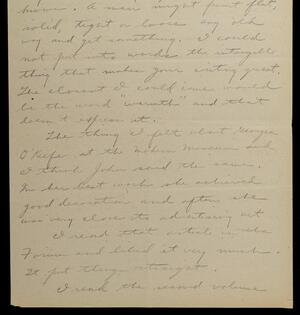 know. A man might paint flat,
solid, tight or loose any old
way and get something. I could
not put into words the intangible
thing that makes your painting great.
The closest I could come would
be the word "warmth" and that
doesn't express it.
The thing I felt about Georgia
O'Keefe at the Modern Museum and
I think John said the same.
In her best work she achieved
good decoration and often she
was very close to advertising art
I read that article in the
Forum and liked it very much.
It put things straight.
I read the second volume